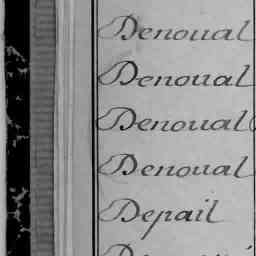 Denoual
Denoual
Denoual
Denoual
Depail